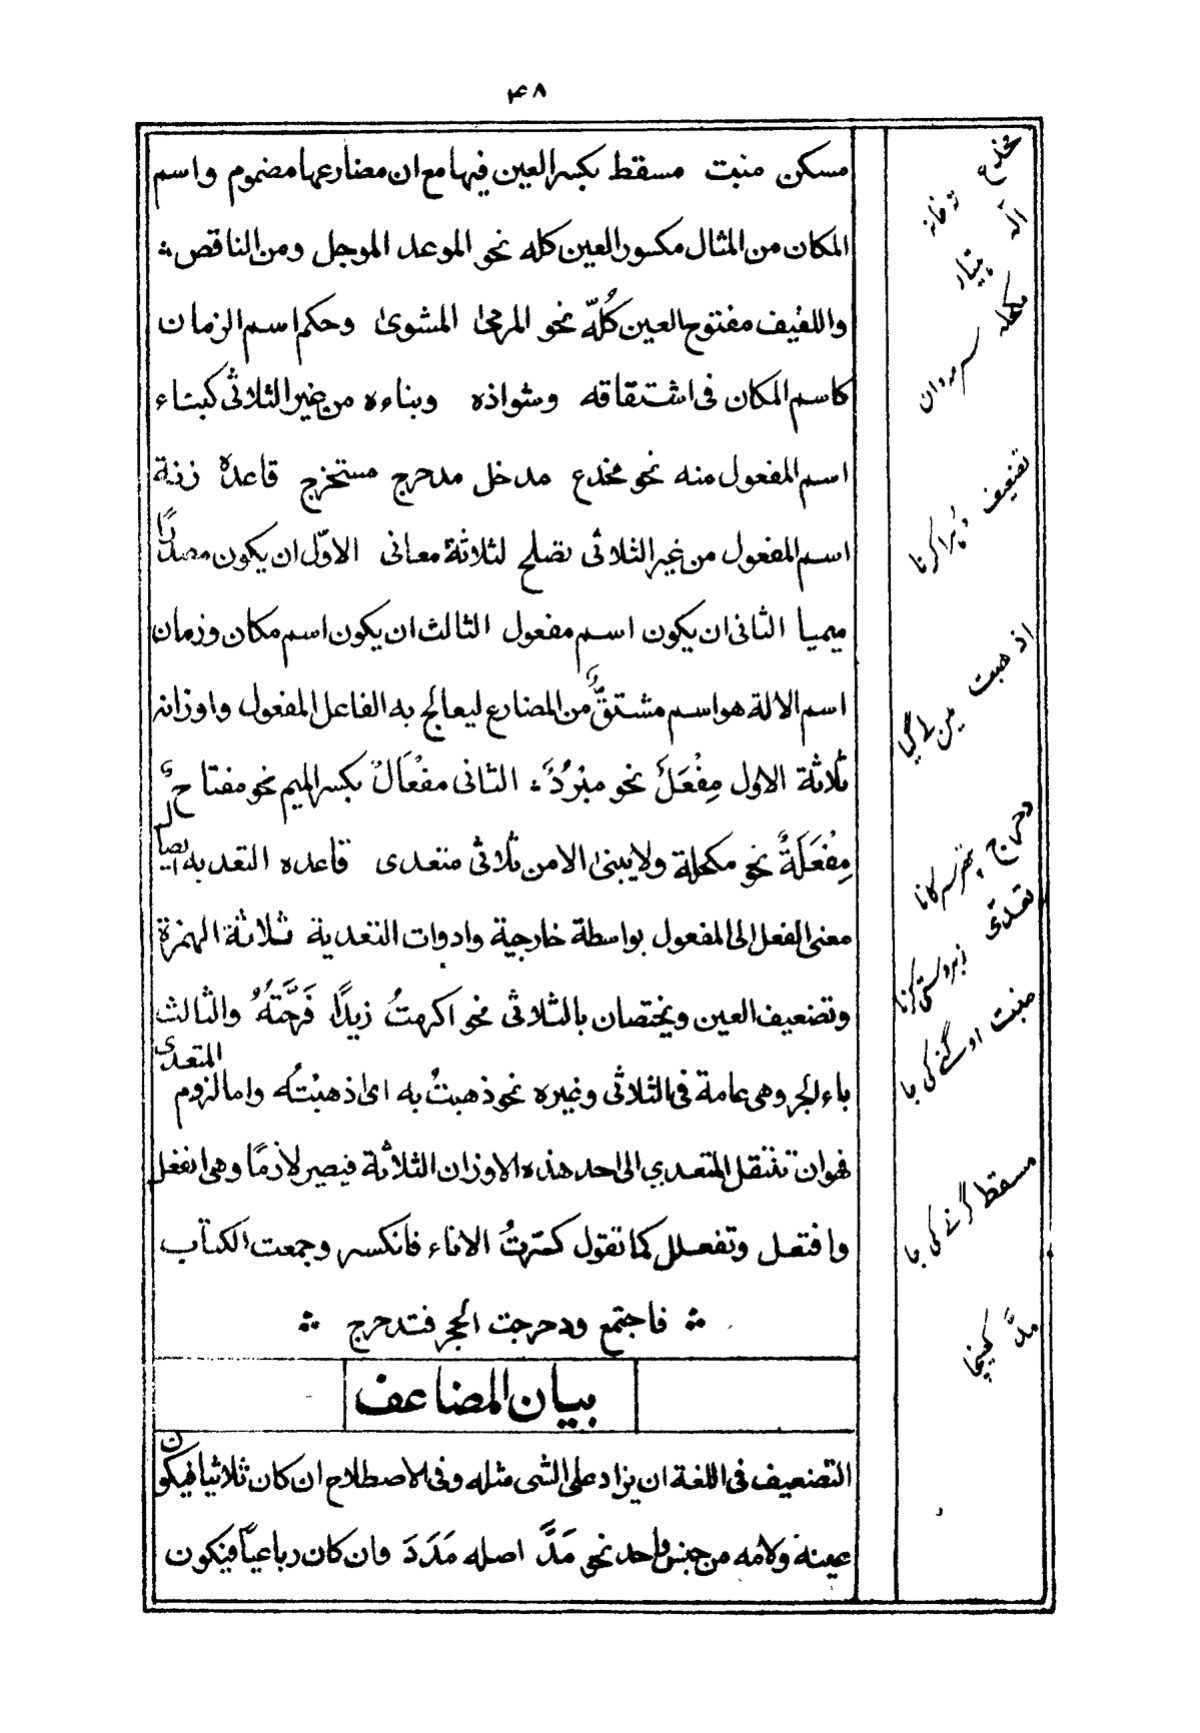 ۴۸
مسکن منبت مسقط بکسر العین فیها مع ان مضارعها مضموم و اسم
المکان من المثال مکسور العین کله نحو الموعد الموجل ومن الناقص
واللفیف مفتوح العین کُلّه نحو المرمیٰ المشویٰ وحکم اسم الزمان
کاسم المکان فی اشتقاقه وشواذه وبناءه من غیر الثلاثی کبناء
اسم المفعول منه نحو مخدع مدخل مدحرج مستخرج قاعدة زنة
اسم المفعول من غیر الثلاثی تصلح لثلاثة معانی الاوّل ان یکون مصدرًا
میمیا الثانی ان یکون اسم مفعول الثالث ان یکون اسم مکان وزمان
اسم الالة هو اسم مشتقٌّ من المضارع لیعالج به الفاعل المفعول و اوزانه
ثلاثة الاول مِفْعَلٌ نحو مبْرَدٌ الثانی مفْعَالٌ بکسر المیم نحو مفتاحٌ
مِفْعَلَةٌ نحو مکحلة ولا یبنیٰ الا من ثلاثی متعدی قاعده التعدیه ایصال
معنی الفعل الی المفعول بواسطة خارجیة وادوات التعدیة ثلاثة الهمزة
وتضعیف العین ویختصان بالثلاثی نحو اکرمتُ زیدًا فَرَّحْتُهُ والثالث
باء الجر وهی عامة فی الثلاثی وغیره نحو ذهبتُ به ای اذهبْتُه واما لزوم المتعدی
فهو ان تنتقل المتعدی الی احد هذه الاوزان الثلاثة فیصیر لازمًا وهی انفعل
وافتعل وتفعلل کما تقول کسّرتُ الاناء فانکسر وجمعت الکتاب
فاجتمع ودحرجت الحجر فتدحرج
بیان المضاعف
التضعیف فی اللغة ان یزاد علی الشی مثله وفی الاصطلاح ان کان ثلاثیا فیکون
عینه ولامه من جنس واحد نحو مَدَّ اصله مَدَدَ وان کان رباعیاً فیکون
مخدع
مکحله
سرمه دان
تضعیف
دُہرا کرنا
اذهبت
میں لے گیا
دحرج
تعدّی
زبردستی کرنا
منبت
اوگنے کی جا
مسقط گرنے کی جا
مدَّ
کھینچا